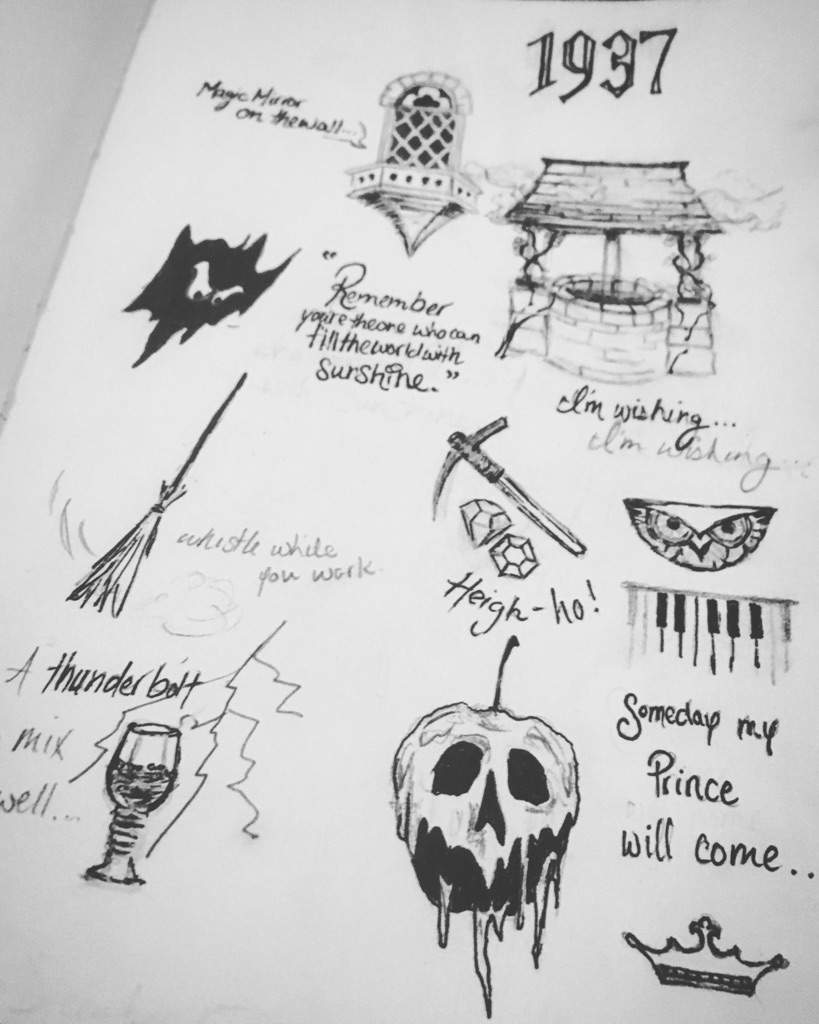 1937
Magic Mirror
on the wall...
"Remember
you're the one who can
fill the world with
sunshine."
I'm wishing...
I'm wishing...
whistle while
you work
Heigh-ho!
A thunderbolt
mix
well...
Someday my
Prince
will come..